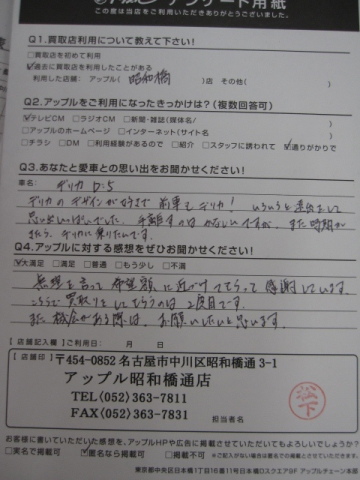 アンケート用紙
この度は当店をご利用いただきありがとうございました。
Q1.買取店利用について教えて下さい!
□買取店を初めて利用
☑過去に買取店を利用したことがある
利用した店舗: アップル( 昭和橋 )店 その他(
Q2.アップルをご利用になったきっかけは?(複数回答可)
☑テレビCM □ラジオCM □新聞・雑誌(媒体名/
□アップルのホームページ □インターネット(サイト名
□チラシ □DM □利用経験があるので □紹介 □スタッフに誘われて ☑通りがかりで
Q3.あなたと愛車との思い出をお聞かせください!
車名: デリカ D:5
デリカのデザインが好きで前車もデリカ! いろいろと遠出をして
思い出いっぱいでした。手離すのはかなしいですが、また時期が
きたら、デリカに乗りたいです。
Q4.アップルに対する感想をぜひお聞かせください!
☑大満足 □満足 □普通 □もう少し □不満
無理を言って希望額に近づけてもらって感謝しています。
こちらで買取りをしてもらうのは2度目です。
また機会がある際は、お願いしたいと思います。
【店舗記入欄】ご利用日: 月 日
【店舗印】
〒454-0852 名古屋市中川区昭和橋通 3-1
アップル昭和橋通店
TEL(052)363-7811
FAX(052)363-7831
担当者名
松下
お客様に書いていただいた感想を、アップルHPや広告に掲載させていただいてもよろしいでしょうか?
□実名で掲載可 ☑匿名なら掲載可 □掲載不可 ※ご記入がない場合は匿名での掲載とさせていただきます。
東京都中央区日本橋1丁目16番11号日本橋Dスクエア9F アップルチェーン本部